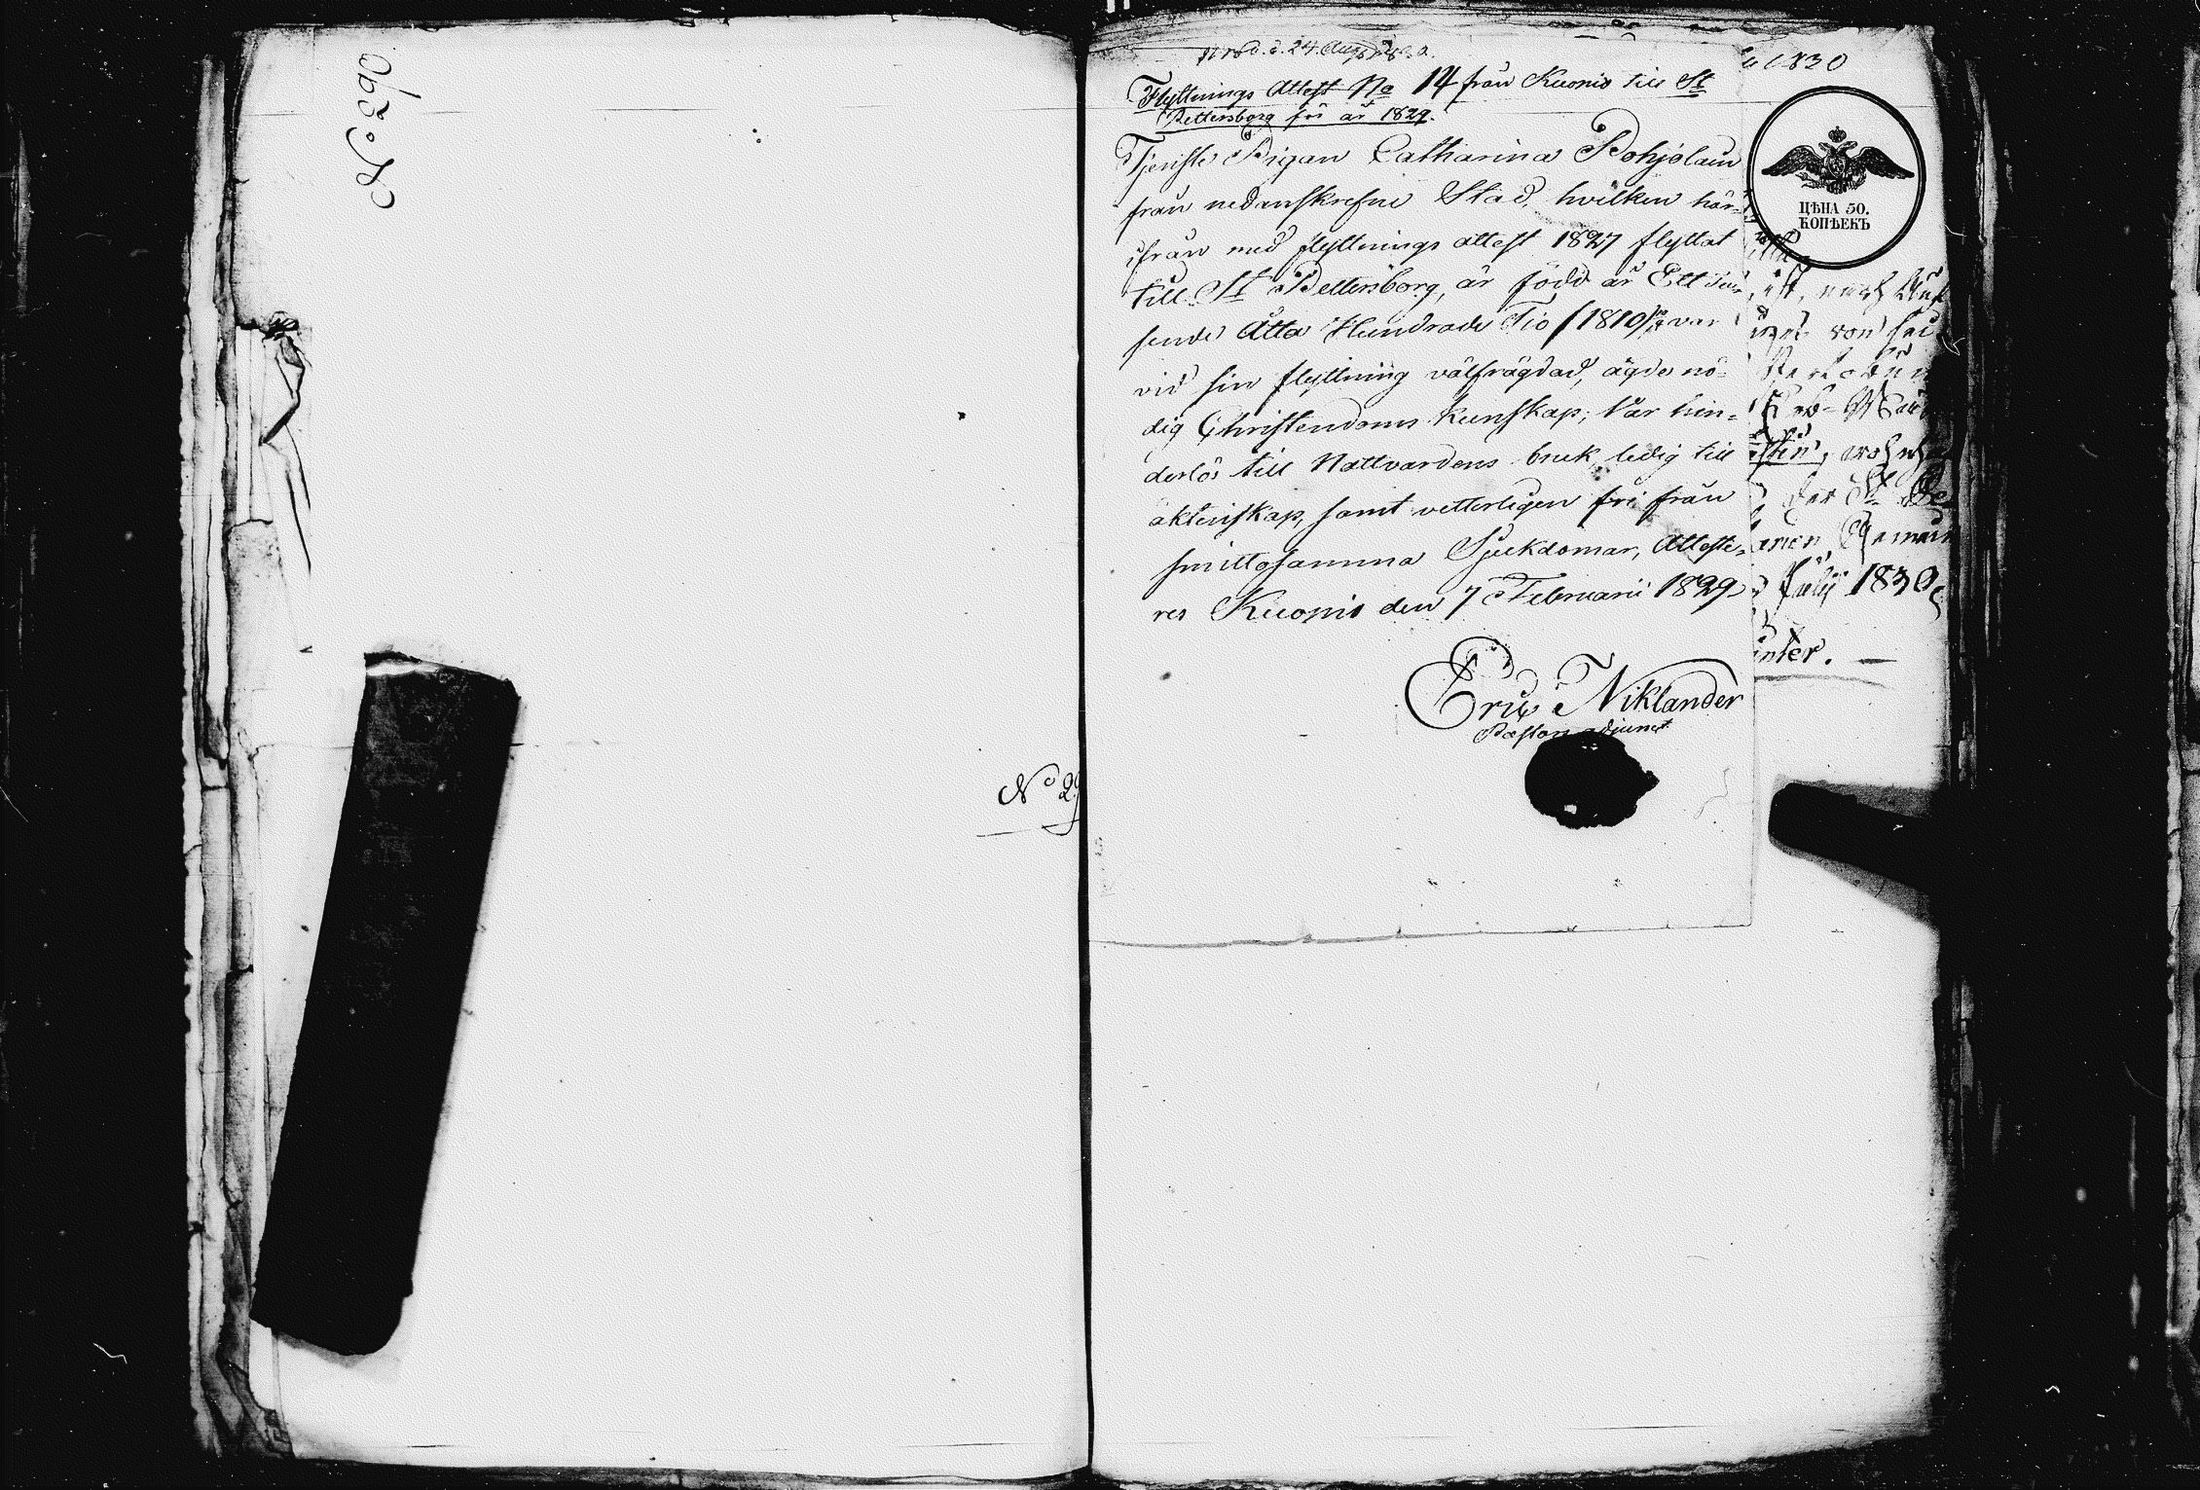 No 390
No 29
d. 24. Aug
Flyttnings Attest No 14 från Kuopio till St
Pettersborg för år 1829.
Tjenste Pigan Catharina Pohjolain
från nedanskrefne Stad, hvilken här-
ifrån med flyttnings attest 1827 flyttat
till St Pettersborg, är född år Ett Tu-
sende Åtta Hundrade Tio /1810/ var
vid sin flyttning välfrägdad, ägde nö-
dig Christendoms kunskap; Var hin-
derlös till Nattvardens bruk, ledig till
äktenskap, samt vetterligen fri från
smittosamma Sjukdomar, Atteste-
res Kuopio den 7 Februarii 1829
Eric Niklander
Pastors adjunct
1830
ЦѢНА 50.
КОПѢЕКЪ
ist, nach
von
der St Pe
Gemein
Julÿ 1830